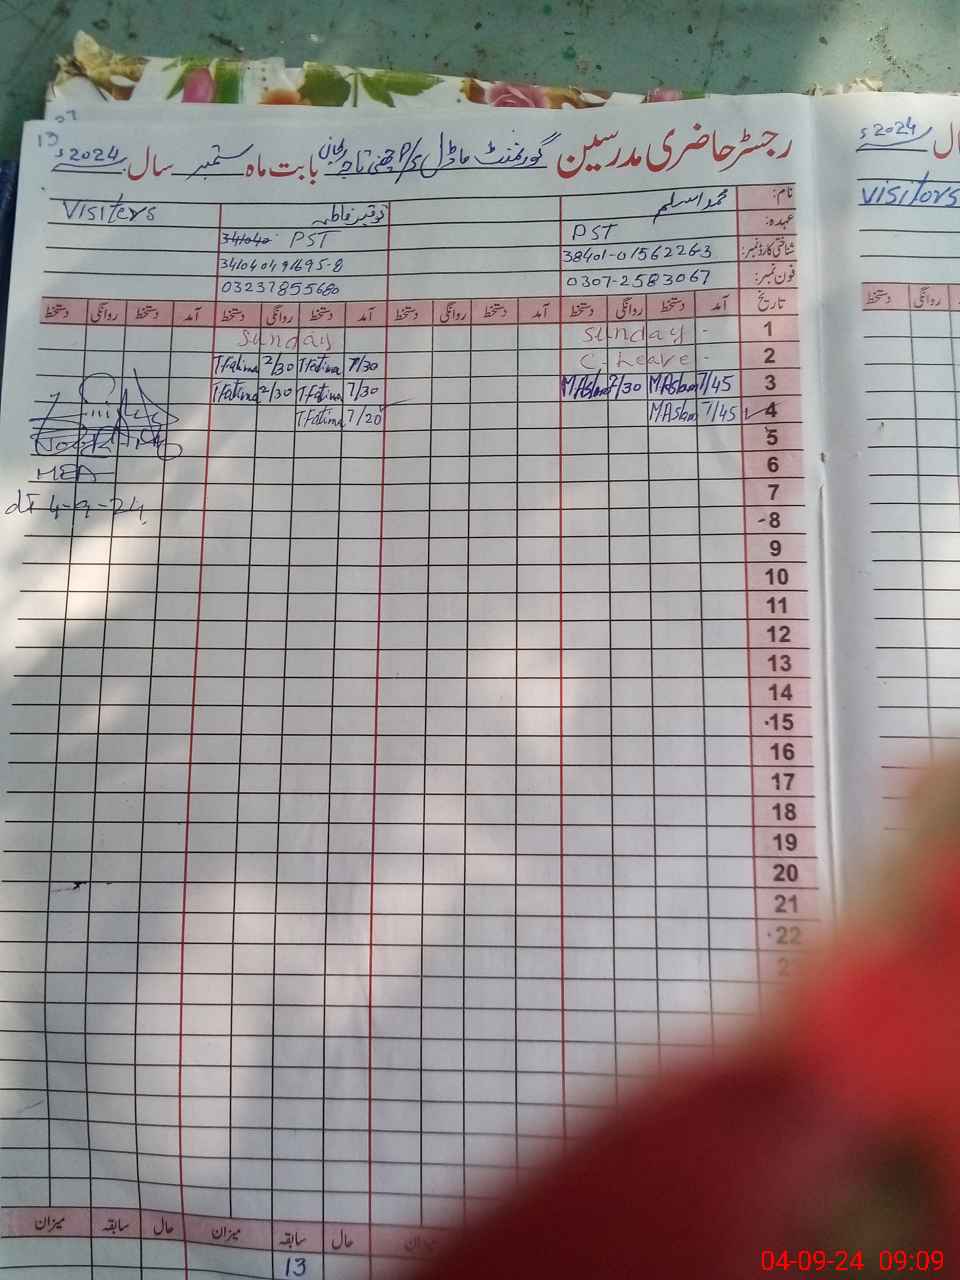 رجسٹر حاضری مدرسین گورنمنٹ ماڈل P/S چھنی تاجہ بابت ماہ ستمبر سال 2024ء
نام: محمد اسلم توقیر فاطمہ Visiters
عہدہ: PST 341040 PST
شناختی کارڈ نمبر: 38401-01562263 341040491695-8
فون نمبر: 0307-2583067 03237855680
تاریخ آمد دستخط روانگی دستخط آمد دستخط روانگی دستخط آمد دستخط روانگی دستخط آمد دستخط روانگی دستخط
1 Sunday - Sunday
2 C-Leave - 7/30 TFatima 2/30 TFatima
3 7/45 MAslam 2/30 MAslam 7/30 TFatima 2/30 TFatima
4 7/45 MAslam 7/20 TFatima
5
6 MEA
7 dt 4-9-24
8
9
10
11
12
13
14
15
16
17
18
19
20
21
22
حال سابقہ میزان حال سابقہ میزان
13
2024ء
Visitors
روانگی دستخط
04-09-24 09:09